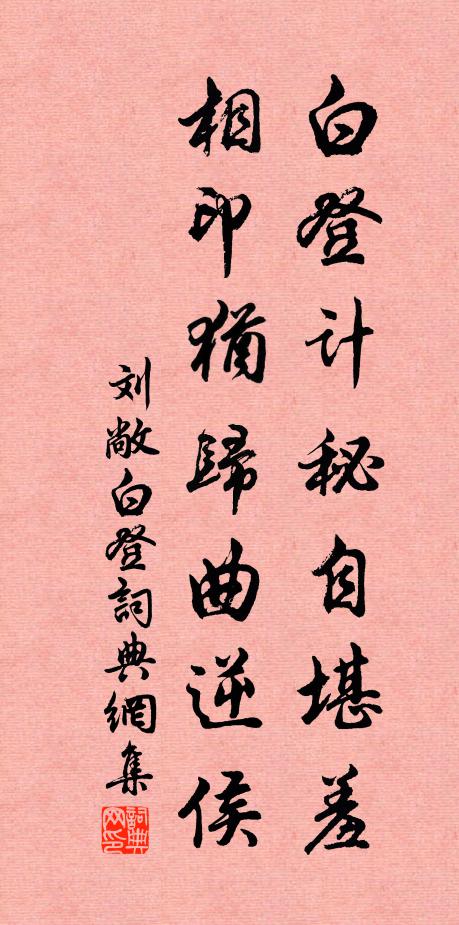 白登计秘自堪羞
相印犹歸曲逆侯
刘敞白登詞典網集
詞典网印